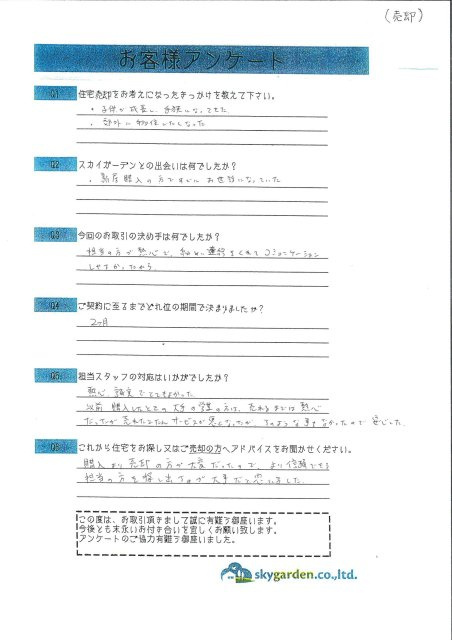 (売却)
お客様アンケート
Q1 住宅売却をお考えになったきっかけを教えて下さい。
・子供が成長し、手狭になってきた
・郊外に移住したくなった
Q2 スカイガーデンとの出会いは何でしたか？
・新居購入の方ですでにお世話になっていた
Q3 今回のお取引の決め手は何でしたか？
担当の方が熱心で、細かい連絡をくれてコミュニケーション
しやすかったから
Q4 ご契約に至るまでどれ位の期間で決まりましたか？
2ヶ月
Q5 担当スタッフの対応はいかがでしたか？
熱心、誠実でとてもよかった
以前購入したときの大手の営業の方は、売れるまでは熱心
だったが売れたとたんサービスが悪くなったが、そのような事もなかったので安心した
Q6 これから住宅をお探し又はご売却の方へアドバイスをお聞かせください。
購入より売却の方が大変だったので、より信頼できる
担当の方を探し出すのが大事だと思いました。
この度は、お取引頂きまして誠に有難う御座います。
今後とも末永いお付き合いを宜しくお願い致します。
アンケートのご協力有難う御座いました。
skygarden.co.,ltd.